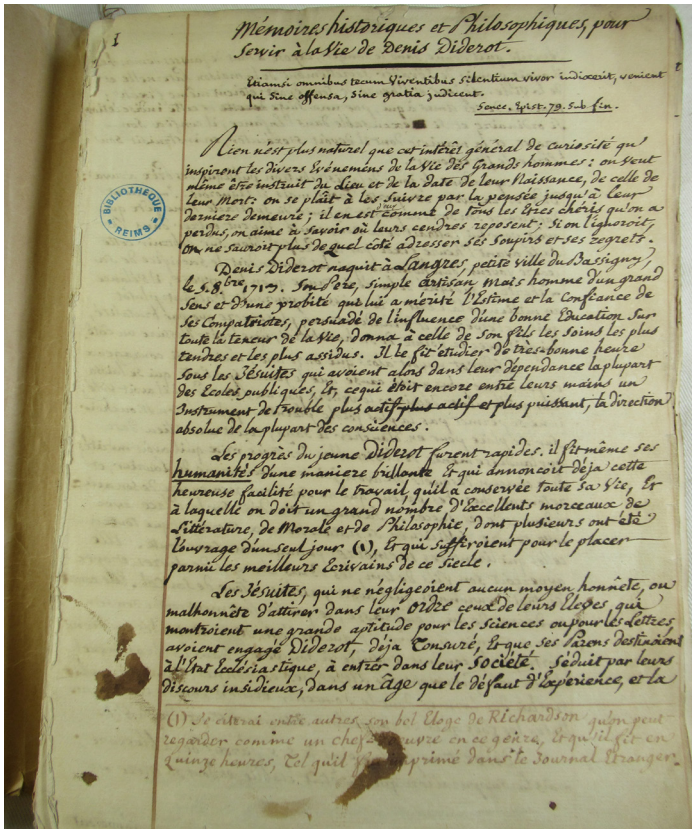 1
Mémoires historiques et Philosophiques, pour
Servir à la Vie de Denis Diderot.
Etiamsi omnibus tecum Viventibus Silentium livor indixerit, venient
qui Sine offensa, Sine gratia judicent.
Senec. Epist. 79. Sub fin.
BIBLIOTHEQUE
REIMS
Rien n'est plus naturel que cet intérêt général de curiosité qu'
inspirent les divers Evénemens de la Vie des Grands hommes : on veut
même être instruit du Lieu et de la date de leur Naissance, de celle de
leur Mort : on se plait à les suivre par la pensée jusqu'à leur
derniere demeure ; il en est comme de tous les Etres chéris qu'on a
perdus, on aime à savoir où leurs cendres reposent ; Si on l'ignoroit,
on ne sauroit plus de quel côté adresser ses Soupirs et ses regrets.
Denis Diderot naquit à Langres, petite ville du Bassigny,
le 5. 8.bre 1713. Son Pere, simple artisan mais homme d'un grand
Sens et d'une probité qui lui a mérité l'Estime et la Confiance de
Ses Compatriotes, persuadé de l'influence d'une bonne Education Sur
toute la teneur de la Vie, donna à celle de Son fils les Soins les plus
tendres et les plus assidus. Il le fit étudier de très-bonne heure
sous les Jésuites qui avoient alors dans leur dependance la plupart
des Ecoles publiques, Et, ce qui étoit encore entre leurs mains un
Instrument de trouble plus actif plus actif et plus puissant, la direction
absolue de la plupart des consciences.
Les progrès du jeune Diderot furent rapides. il fit même ses
humanités d'une maniere brillante Et qui annoncoit déja cette
heureuse facilité pour le travail qu'il a conservée toute sa Vie, Et
à laquelle on doit un grand nombre d'Excellents morceaux de
Littérature, de Morale et de Philosophie, dont plusieurs ont été
l'ouvrage d'un seul jour (1), Et qui Suffiroient pour le placer
parmi les meilleurs Ecrivains de ce Siecle.
Les Jésuites, qui ne négligeoient aucun moyen honnête, ou
malhonnête d'attirer dans leur Ordre ceux de leurs Eleves, qui
montroient une grande aptitude pour les Sciences ou pour les Lettres,
avoient engagé Diderot, déja Tonsuré, Et que ses Parens destinoient
à l'Etat Ecclésiastique, à entrer dans leur Société. Séduit par leurs
discours insidieux, dans un âge que le défaut d'Experience, et la
(1) Je citerai entre autres son bel Eloge de Richardson qu'on peut
regarder comme un chef-d'œuvre en ce genre, Et qu'il fit en
quinze heures, Tel qu'il imprimé dans le Journal Etranger.